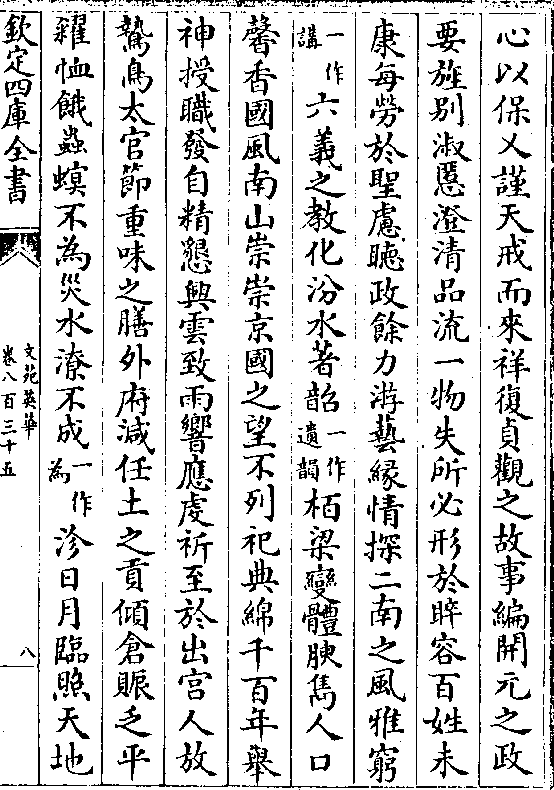 心以保乂謹天戒而來祥復貞觀之故事編開元之政
要旌别淑慝澄清品流一物失所必形於睟容百姓未
康每勞於聖慮聽政餘力游藝緣情探二南之風雅窮
一作講六義之教化汾水著韶一作遺韻栢梁變體腴雋人口
馨香國風南山崇崇京國之望不列祀典綿千百年舉
神授職發自精懇興雲致雨響應虔祈至於出宫人放
鷙鳥太官節重味之膳外府減任土之貢傾倉賑乏平
糴恤餓蟲螟不為災水潦不成一作為沴日月臨照天地
欽定四庫全書
文苑英華
卷八百三十五
八